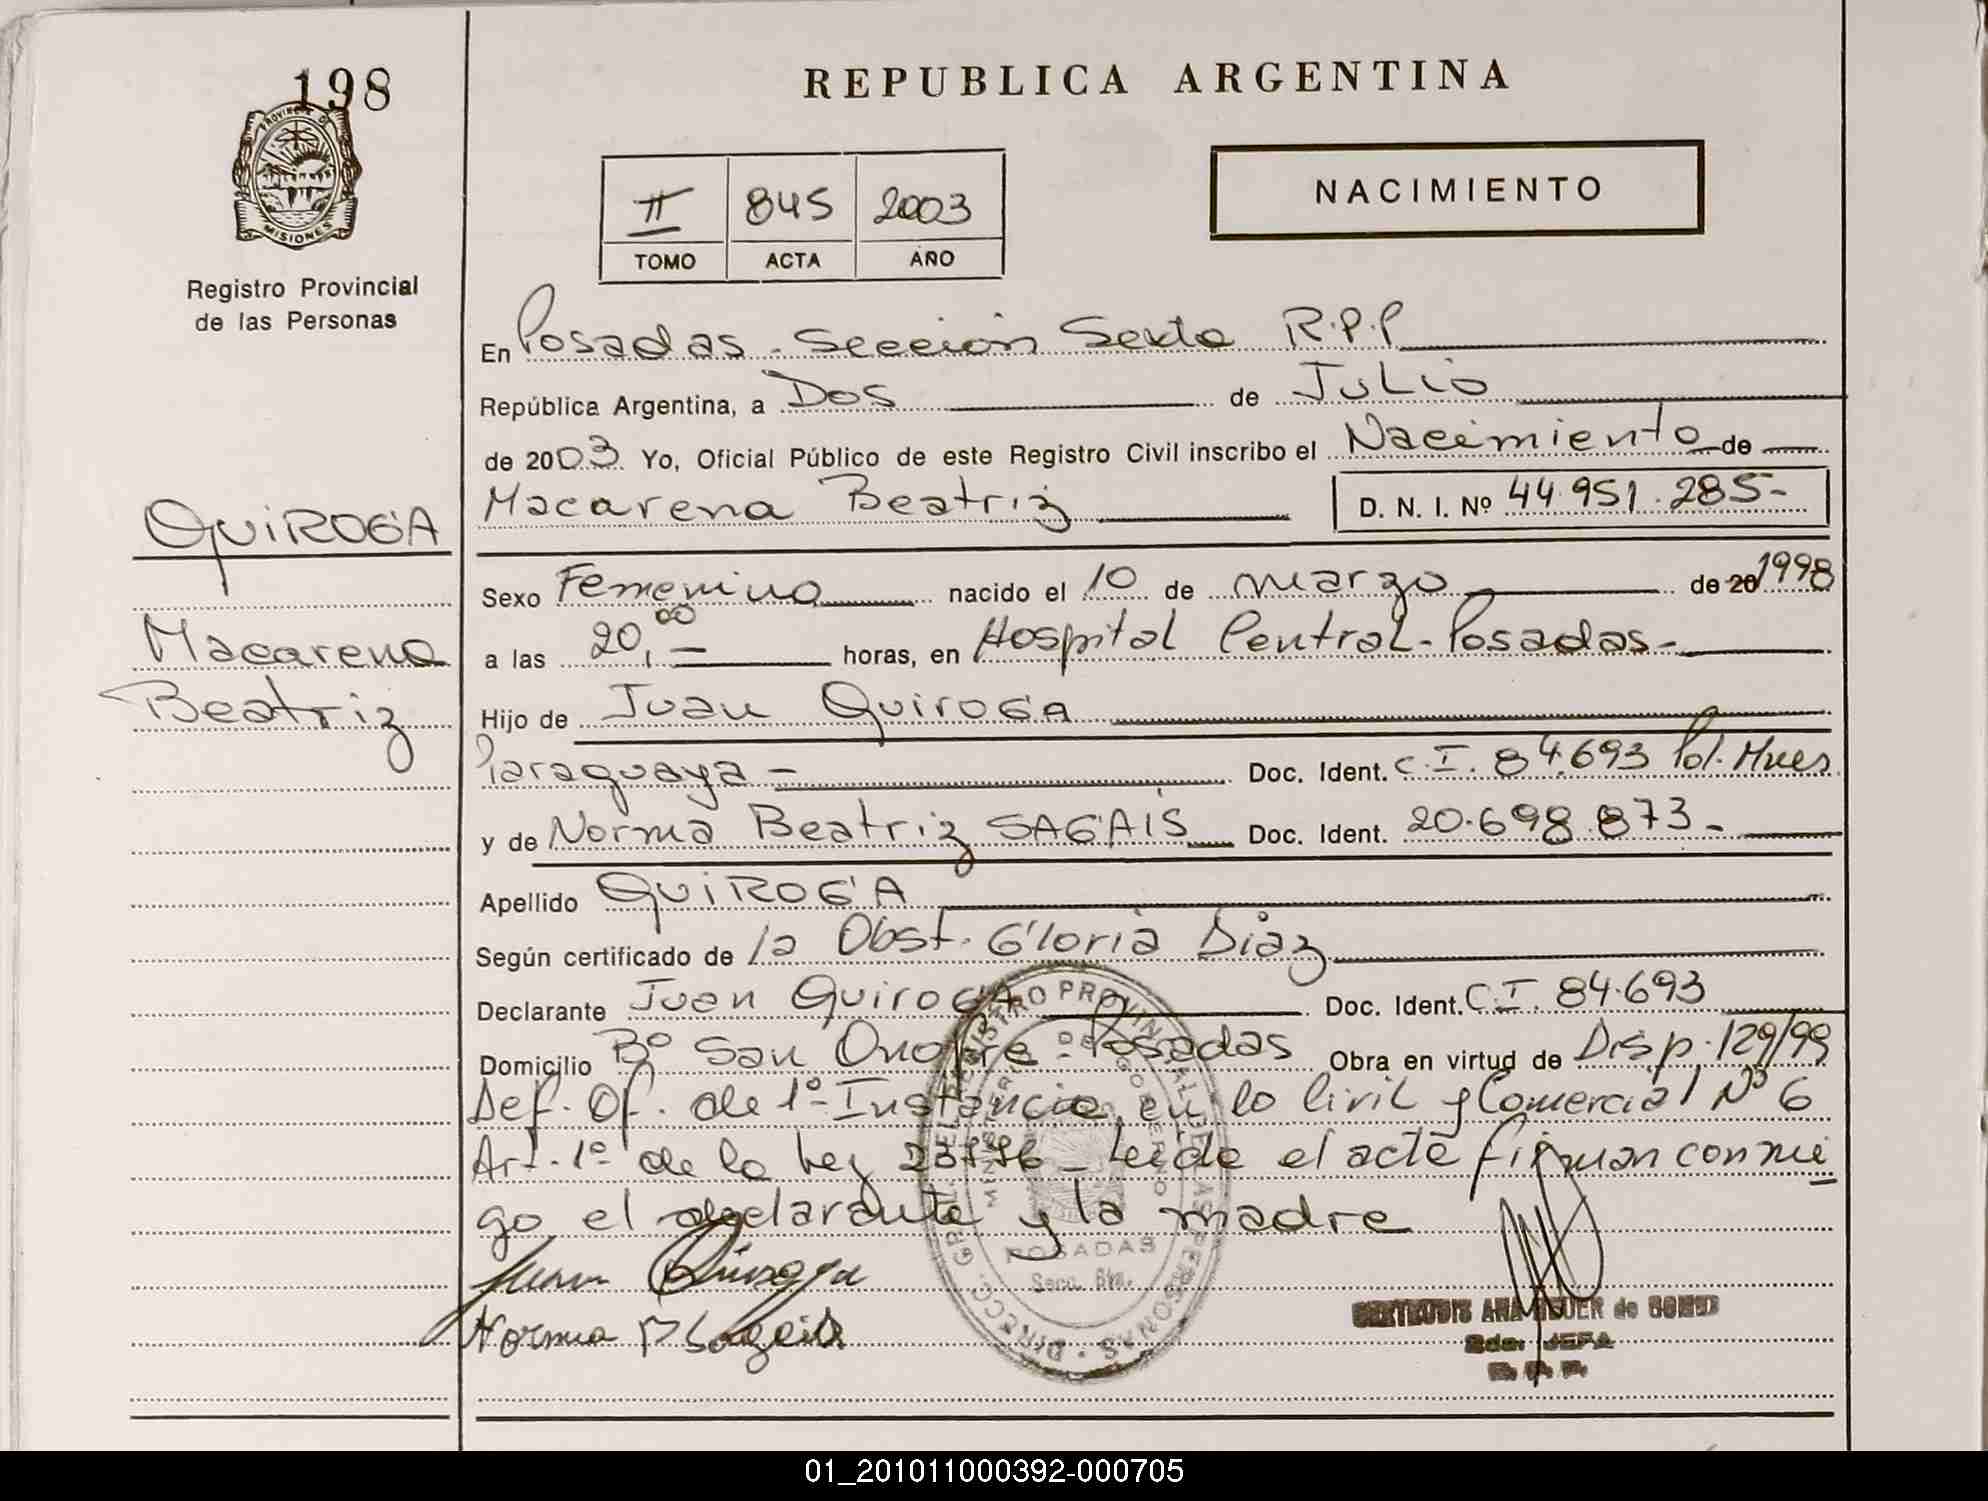 198
REPUBLICA ARGENTINA
PROVINCIA DE
MISIONES
Registro Provincial
de las Personas
II 845 2003
TOMO ACTA AÑO
NACIMIENTO
En Posadas - Sección Sexta R.P.P
República Argentina, a Dos de Julio
de 2003 Yo, Oficial Público de este Registro Civil inscribo el Nacimiento de
Macarena Beatriz D. N. I. Nº 44.951.285-
QUIROGA
Macarena
Beatriz
Sexo Femenino nacido el 10 de marzo de 20 1998
a las 20,00 - horas, en Hospital Central - Posadas -
Hijo de Juan QuiroGA
Paraguaya - Doc. Ident. C.I. 84.693 Pol. Mnes
y de Norma Beatriz SAGAIS Doc. Ident. 20.698.873-
Apellido QUIROGA
Según certificado de la Obst. Gloria Diaz
Declarante Juan QuiroGA Doc. Ident. C.I. 84.693
Domicilio Bº San Onofre - Posadas Obra en virtud de Disp. 129/99
Def. Of. de 1º Instancia en lo Civil y Comercial Nº 6
Art. 1º de la Ley - Leida el acta firman conmi
go el declarante y la madre
Juan Quiroga
Norma B Sagais
DIRECC. GRAL. DEL REGISTRO PROVINCIAL DE LAS PERSONAS
MINISTERIO DE GOBIERNO
POSADAS
Secc. 6ta.
GERTRUDIS ANA de GOMEZ
2da. JEFA
R. P. P.
01_201011000392-000705